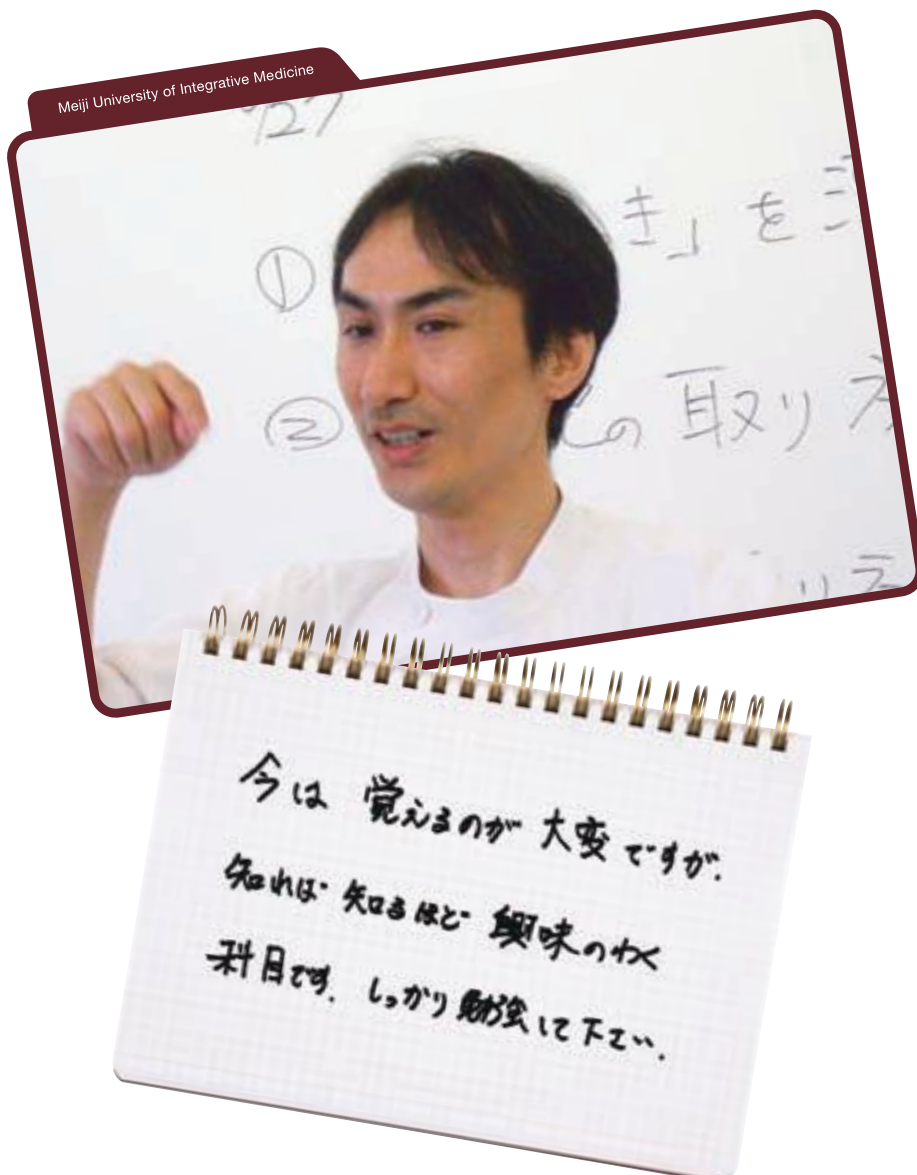 Meiji University of Integrative Medicine
①
き」を
②
の取り
今は 覚えるのが 大変ですが.
知れば 知るほど 興味のわく
科目です. しっかり勉強して下さい.